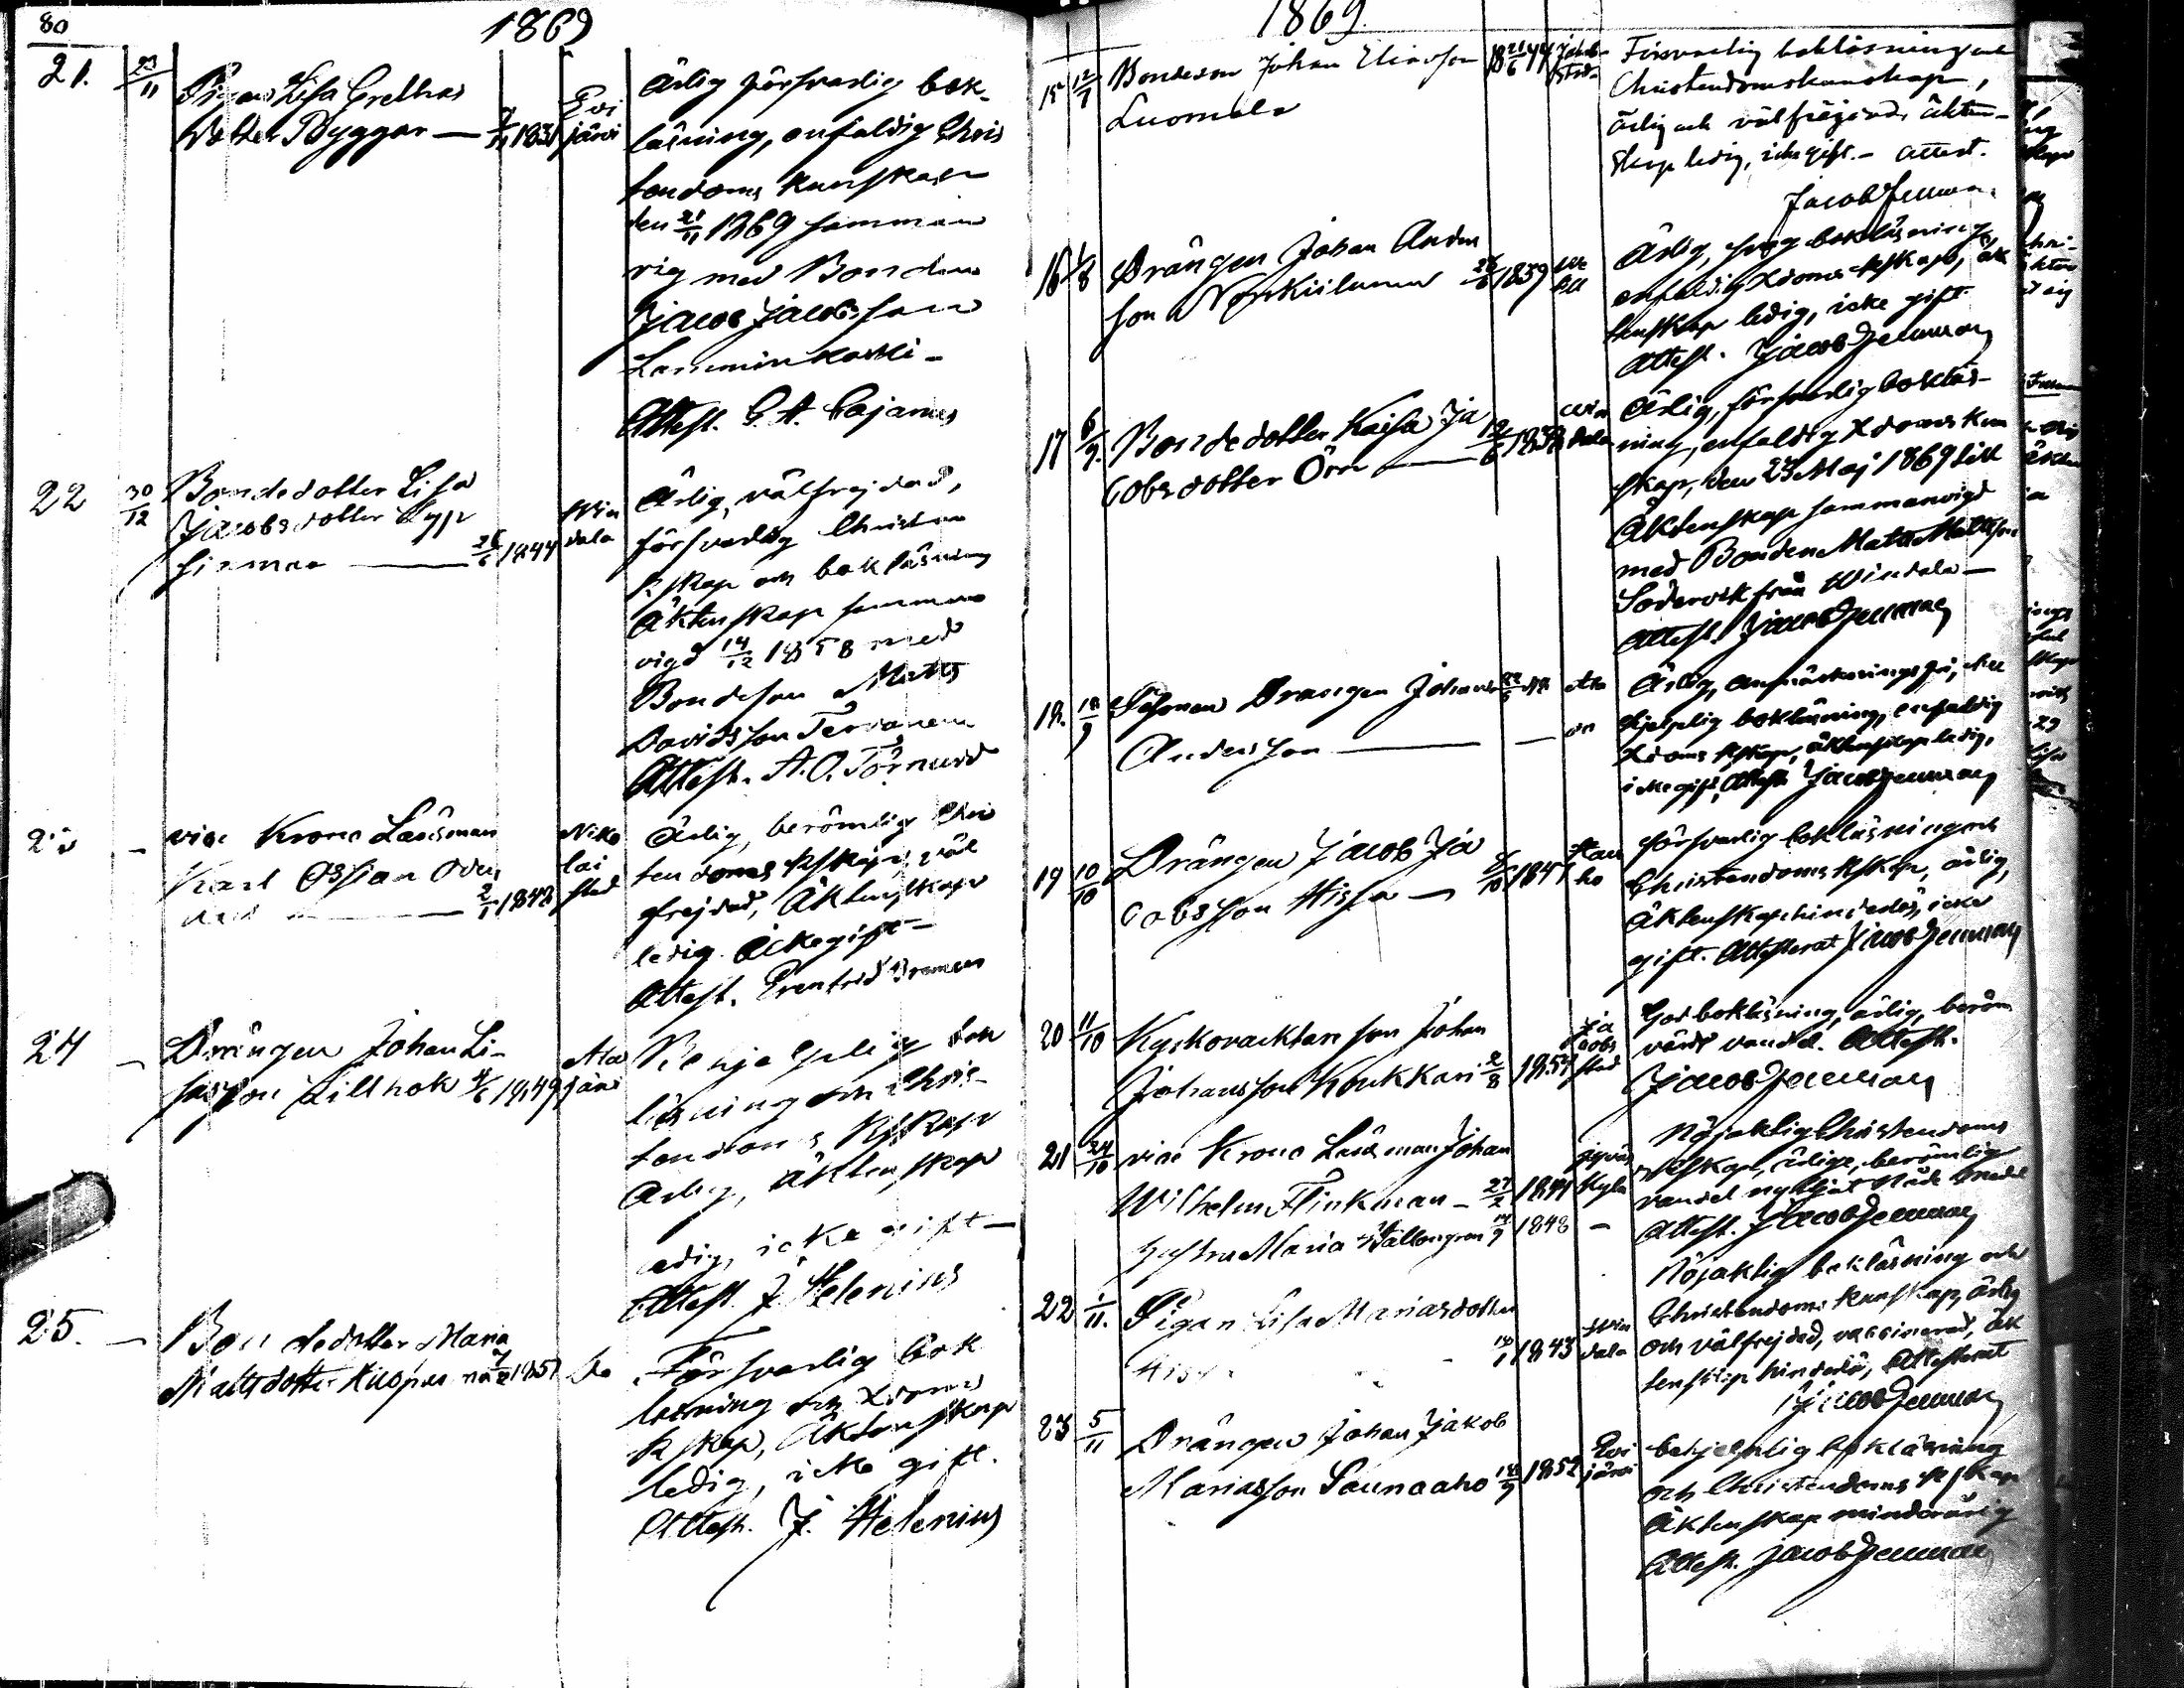 80
1869
21. 23/11 Pigan Lisa Grethas
dotter Byggar — 1831 Evi
järvi
Ärlig försvarlig bok-
läsning, enfaldig Chris
tendoms kunskap
den 21/11 1869 samman
vig med Bonden
Jacob Jacobsson
Lamminkoski -
Attest. C. A. Cajanus
22 30/12 Bondedotter Lisa
Jacobsdotter
— 26/6 1844 Win
dala
Ärlig, välfrejdad,
försvarlig Christen
kskap och bokläsning
Äktenskap samman
vigd 14/12 1858 med
Bondeson Matts
Davidsson Tervanem
Attest. A. O. Törnudd
23 — vice Krono Länsman
Karl Ossian
— 2/1 1843 Niko
lai
stad
Ärlig, berömlig Chris
tendoms kskap, väl
frejdad, Äktenskaps
ledig Icke gift —
Attest.
24 — Drängen Johan Li-
sasson Lillhok 4/6 1849 Ala
järvi
Behjelplig bok
läsning och Chris-
tendoms kskap
Ärlig, äktenskap
ledig, icke gift —
Attest. J. Helenius
25. — Bondedotter Maria
Mattsdotter 1851 do
Försvarlig bok
läsning och Xdoms
kskap, Äktenskap
ledig, icke gift.
Attest. J. Helenius
1869.
15 12/7 Bondeson Johan Eliasson 18 21/6 44 Jakob-
stad
Luomala
Försvarlig bokläsning och
Christendomskunskap,
ärlig och välfrejdad, äkten-
skap ledig, icke gift. — Attest.
Jacob Jenman
16 1/8 Drängen Johan Anders
son 1839 We
till
Ärlig, svag bokläsning,
enfaldig Xdoms kskap, äk
tenskap ledig, icke gift
Attest. Jacob Jenman
17 6/9. Bondedotter Kaisa Ja
cobsdotter Örn — Win
dala
Ärlig, försvarlig bokläs-
ning, enfaldig Xdoms kun
skap, den 23 Maj 1869 till
Äktenskap sammanvigd
med Bonden Matts Mattsson
Södervik från Windala —
Attest. Jacob Jenman
18. 18/9 Drängen Johan
Andersson —
Ärlig, anmärkningsfri,
hjelplig bokläsning, enfaldig
Xdoms kskap, äktenskap ledig,
icke gift, Attest Jacob Jenman
19 10/10 Drängen Jacob Ja
cobsson Hissa — 1847 Kau
ho
försvarlig bokläsning och
Christendoms kskap, ärlig,
Äktenskap hinderlös, icke
gift. Attesterat Jacob Jenman
20 11/10 Kyrkovacktarson Johan
Johansson Koukkari 2/8 1857 Ja
cobs
stad
God bokläsning, ärlig, beröm
värd vandel. Attest.
Jacob Jenman
21 24/10 vice Krono Länsman Johan
Wilhelm Flinkman — 27/2 1844 Jyväs
kylä
Hustru Maria 1848 —
Nöjaktig Christendoms
kskap, ärlige, berömlig
vandel nyttjat Nåde medel
Attest. Jacob Jenman
22 1/11. Pigan Lisa Mariasdotter
1843 Win
dala
Nöjaktig bokläsning och
Christendoms kunskap, ärlig
och välfrejdad, vaccinerad, äk
tenskap hinderlös, Attesterat
Jacob Jenman
23 5/11 Drängen Johan Jakob
Mariasson Saunaaho 1852 Evi
järvi
behjelplig bokläsning
och Christendoms kskap
Äktenskap minderårig
Attest. Jacob Jenman